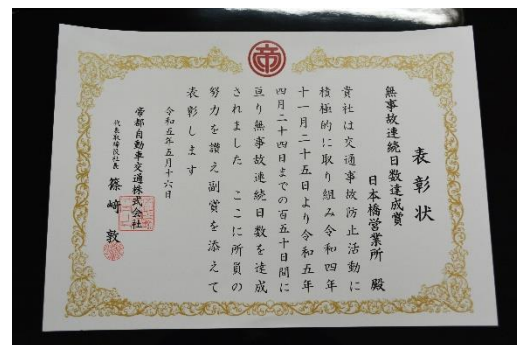 帝
表彰状
無事故連続日数達成賞
日本橋営業所 殿
貴社は交通事故防止活動に
積極的に取り組み令和四年
十一月二十五日より令和五年
四月二十四日までの百五十日間に
亘り無事故連続日数を達成
されました ここに所員の
努力を讃え副賞を添えて
表彰します
令和五年五月十六日
帝都自動車交通株式会社
代表取締役社長 篠﨑 敦